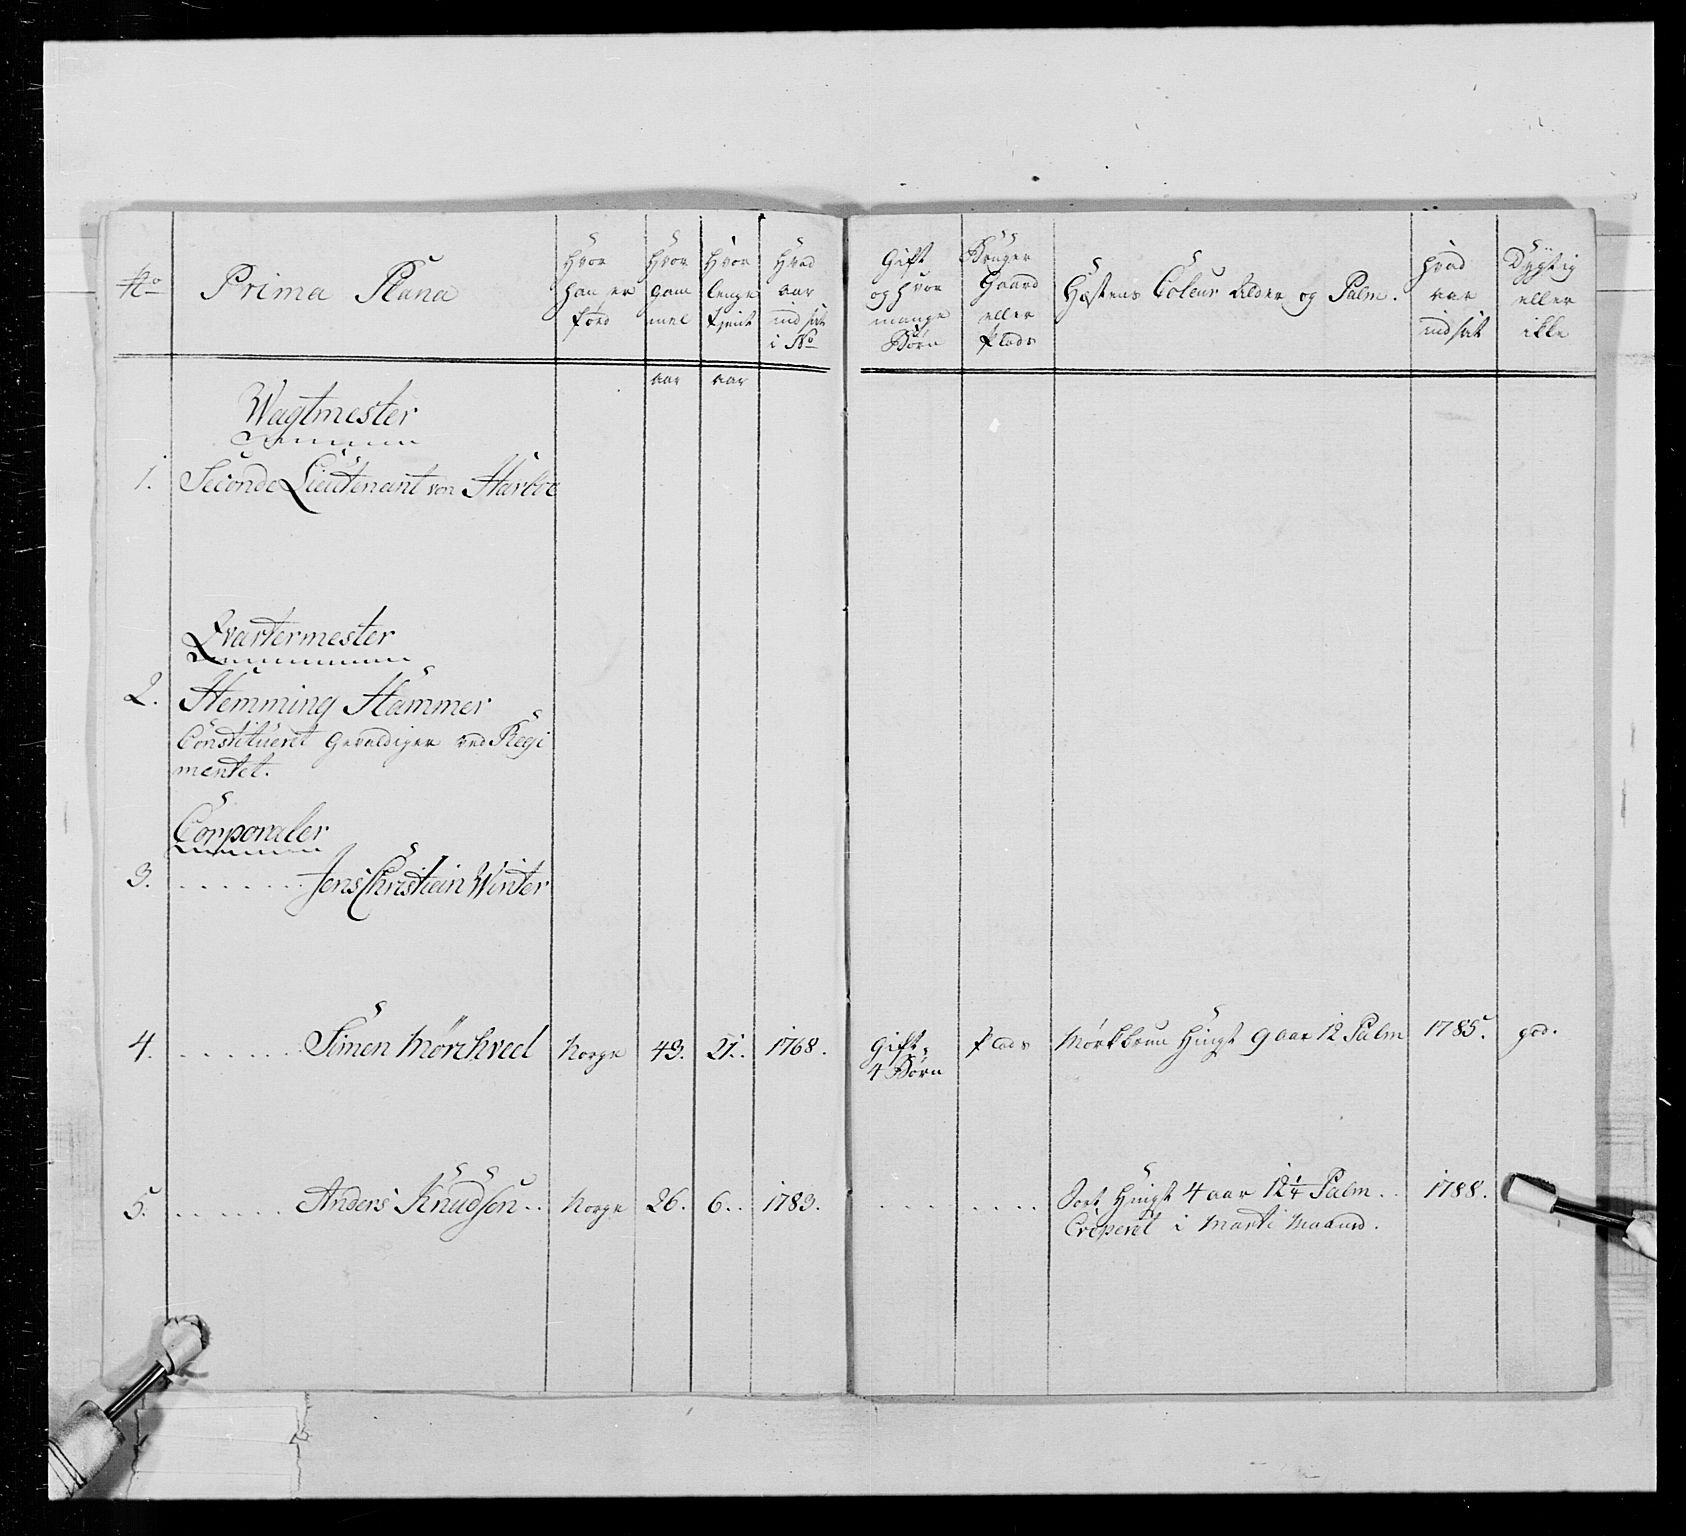 No
Prima Plana
Hvor
han er
född
Hvor
gam
mel
Hvor
lenge
tient
Hvad
aar
ind sat
i No
Gift
og hvor
mange
Børn
Bruger
Gaard
eller
Plads
Hæstens Coleur Alder og Palm.
hvad
aar
indsat
Dygtig
eller
ikke
aar aar
Wagtmester
1. Seconde Lieutenant von Harboe
Qvartermester
2. Hemming Hammer
Constitueret Gevaldiger ved Regi
mentet.
Corporaler
3. . . . . . . . Jens Christian Winter
4. . . . . . . . Simen Mörchved Norge 43. 21. 1768. Gift, Plads Mørkbrun Hingst 9 aar 12 Palm 1785. god.
4 Børn
5. . . . . . . Anders Knudsen . . Norge 26. 6. . 1783. . . . . . . . . Sort Hingst 4 aar 12 1/4 Palm . . 1788.
Creperet i Marti Maaned.